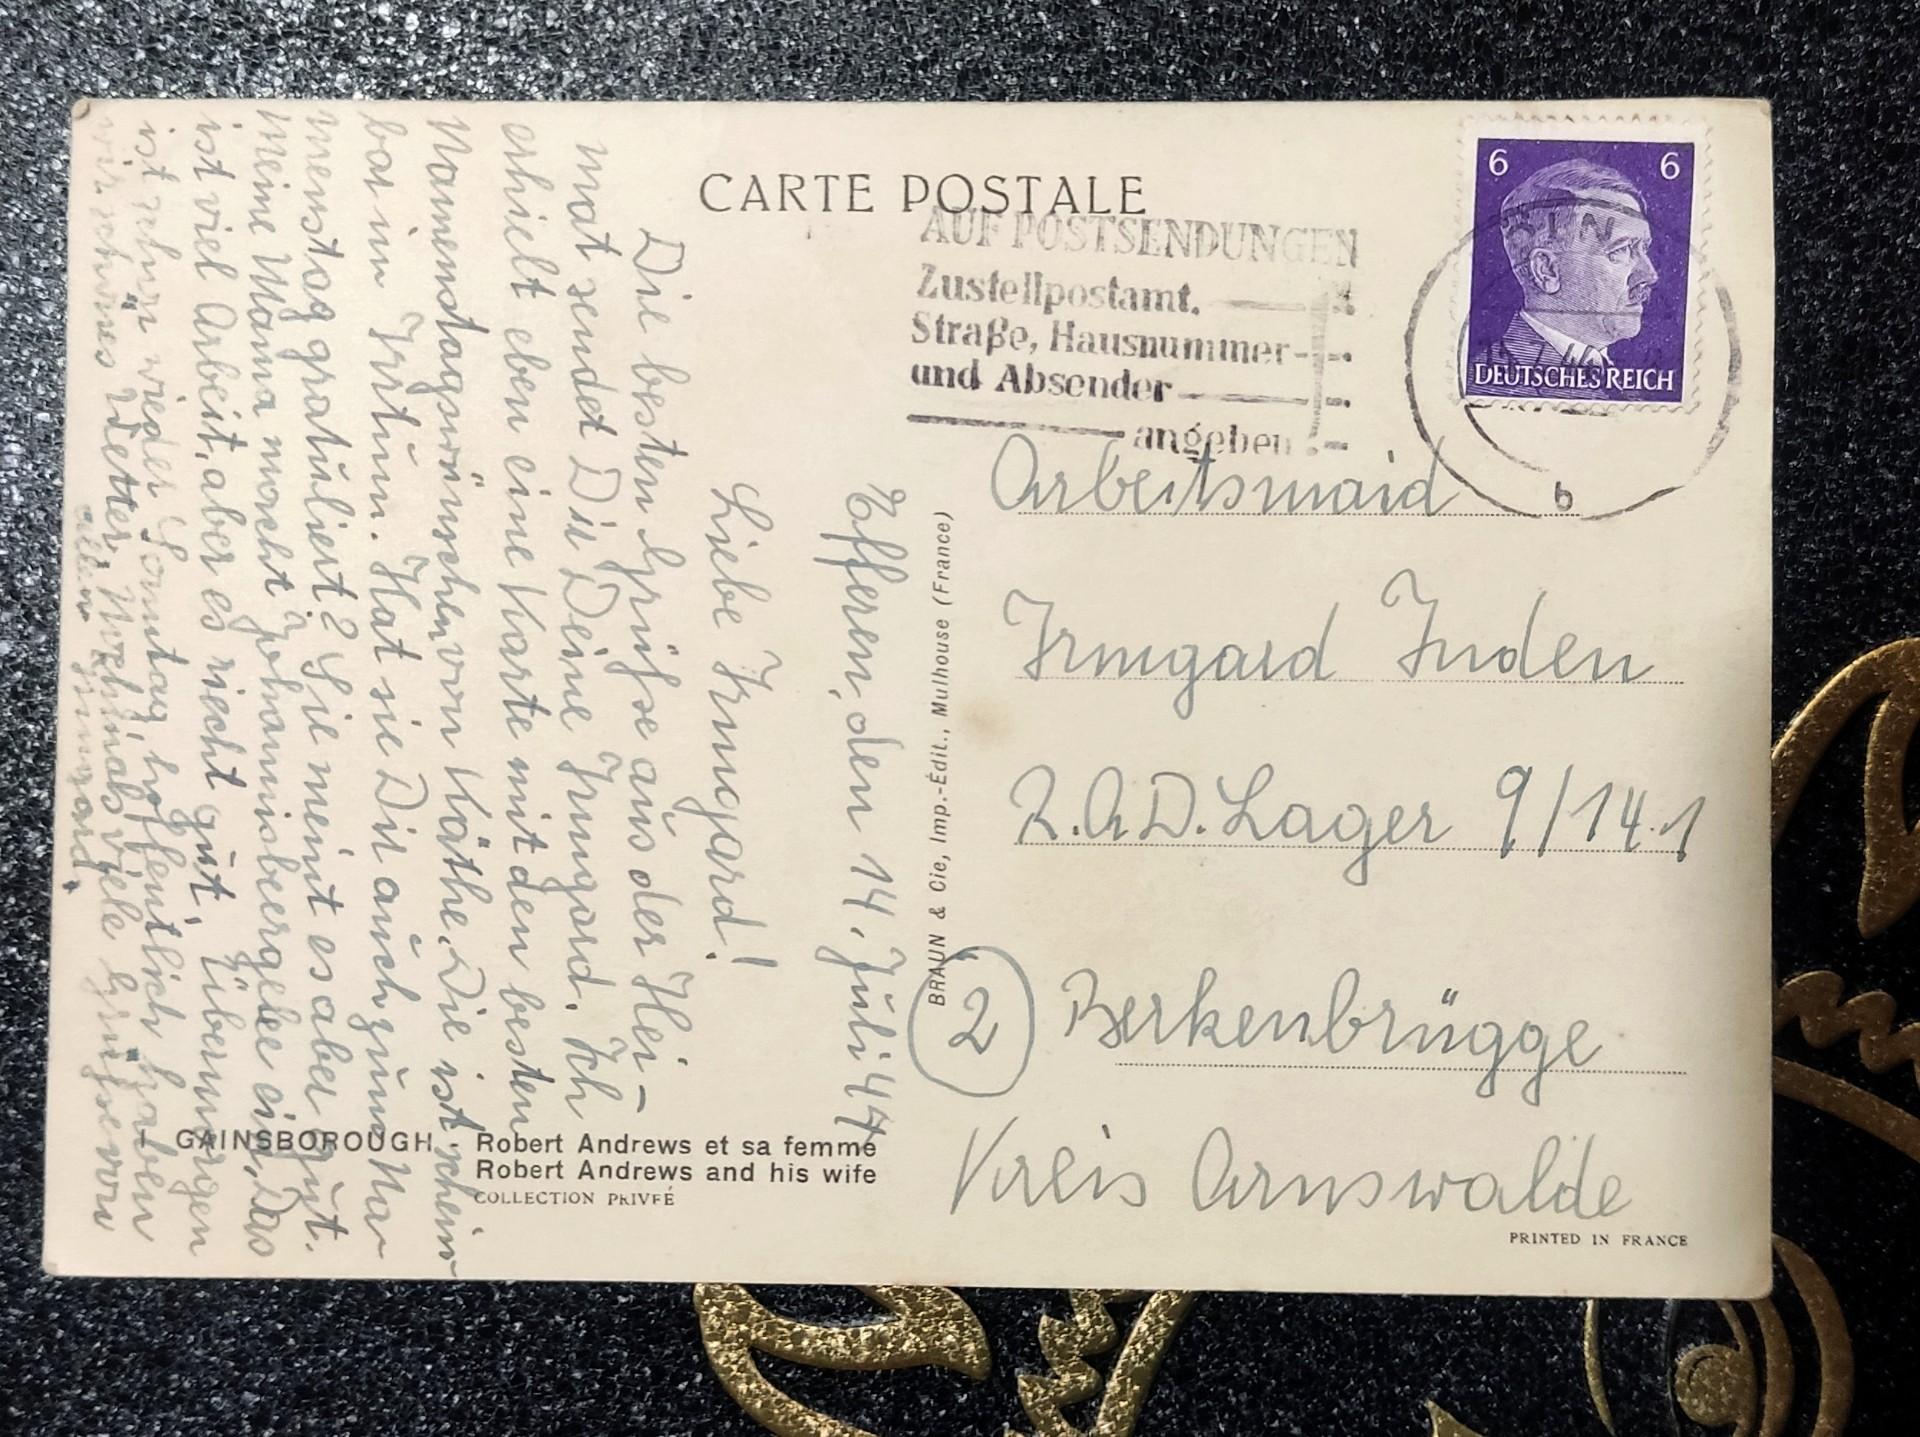 CARTE POSTALE
AUF POSTSENDUNGEN
Zustellpostamt.
Straße, Hausnummer
und Absender
angeben
6 6
DEUTSCHES REICH
b
Efferen, den 14. Juli 44
Liebe Irmgard!
Die besten Grüße aus der Hei-
mat sendet Dir Deine Irmgard. Ich
erhielt eben eine Karte mit den besten
Namenstagswünschen von Käthe. Die ist schein-
bar im Irrtum. Hat sie Dir auch zum Na-
menstag gratuliert? Sie meint es aber gut.
Meine Mama macht Johannisbergelee ein, Das
ist viel Arbeit, aber es riecht gut. Übermorgen
ist schon wieder Sonntag, hoffentlich haben
wir schönes Wetter. Nochmals viele Grüße von
allen Irmgard.
BRAUN & Cie, Imp.-Édit., Mulhouse (France)
Arbeitsmaid
Irmgard Inden
R.A.D. Lager 9/141
2 Berkenbrügge
Kreis Arnswalde
GAINSBOROUGH - Robert Andrews et sa femme
Robert Andrews and his wife
COLLECTION PRIVÉE
PRINTED IN FRANCE